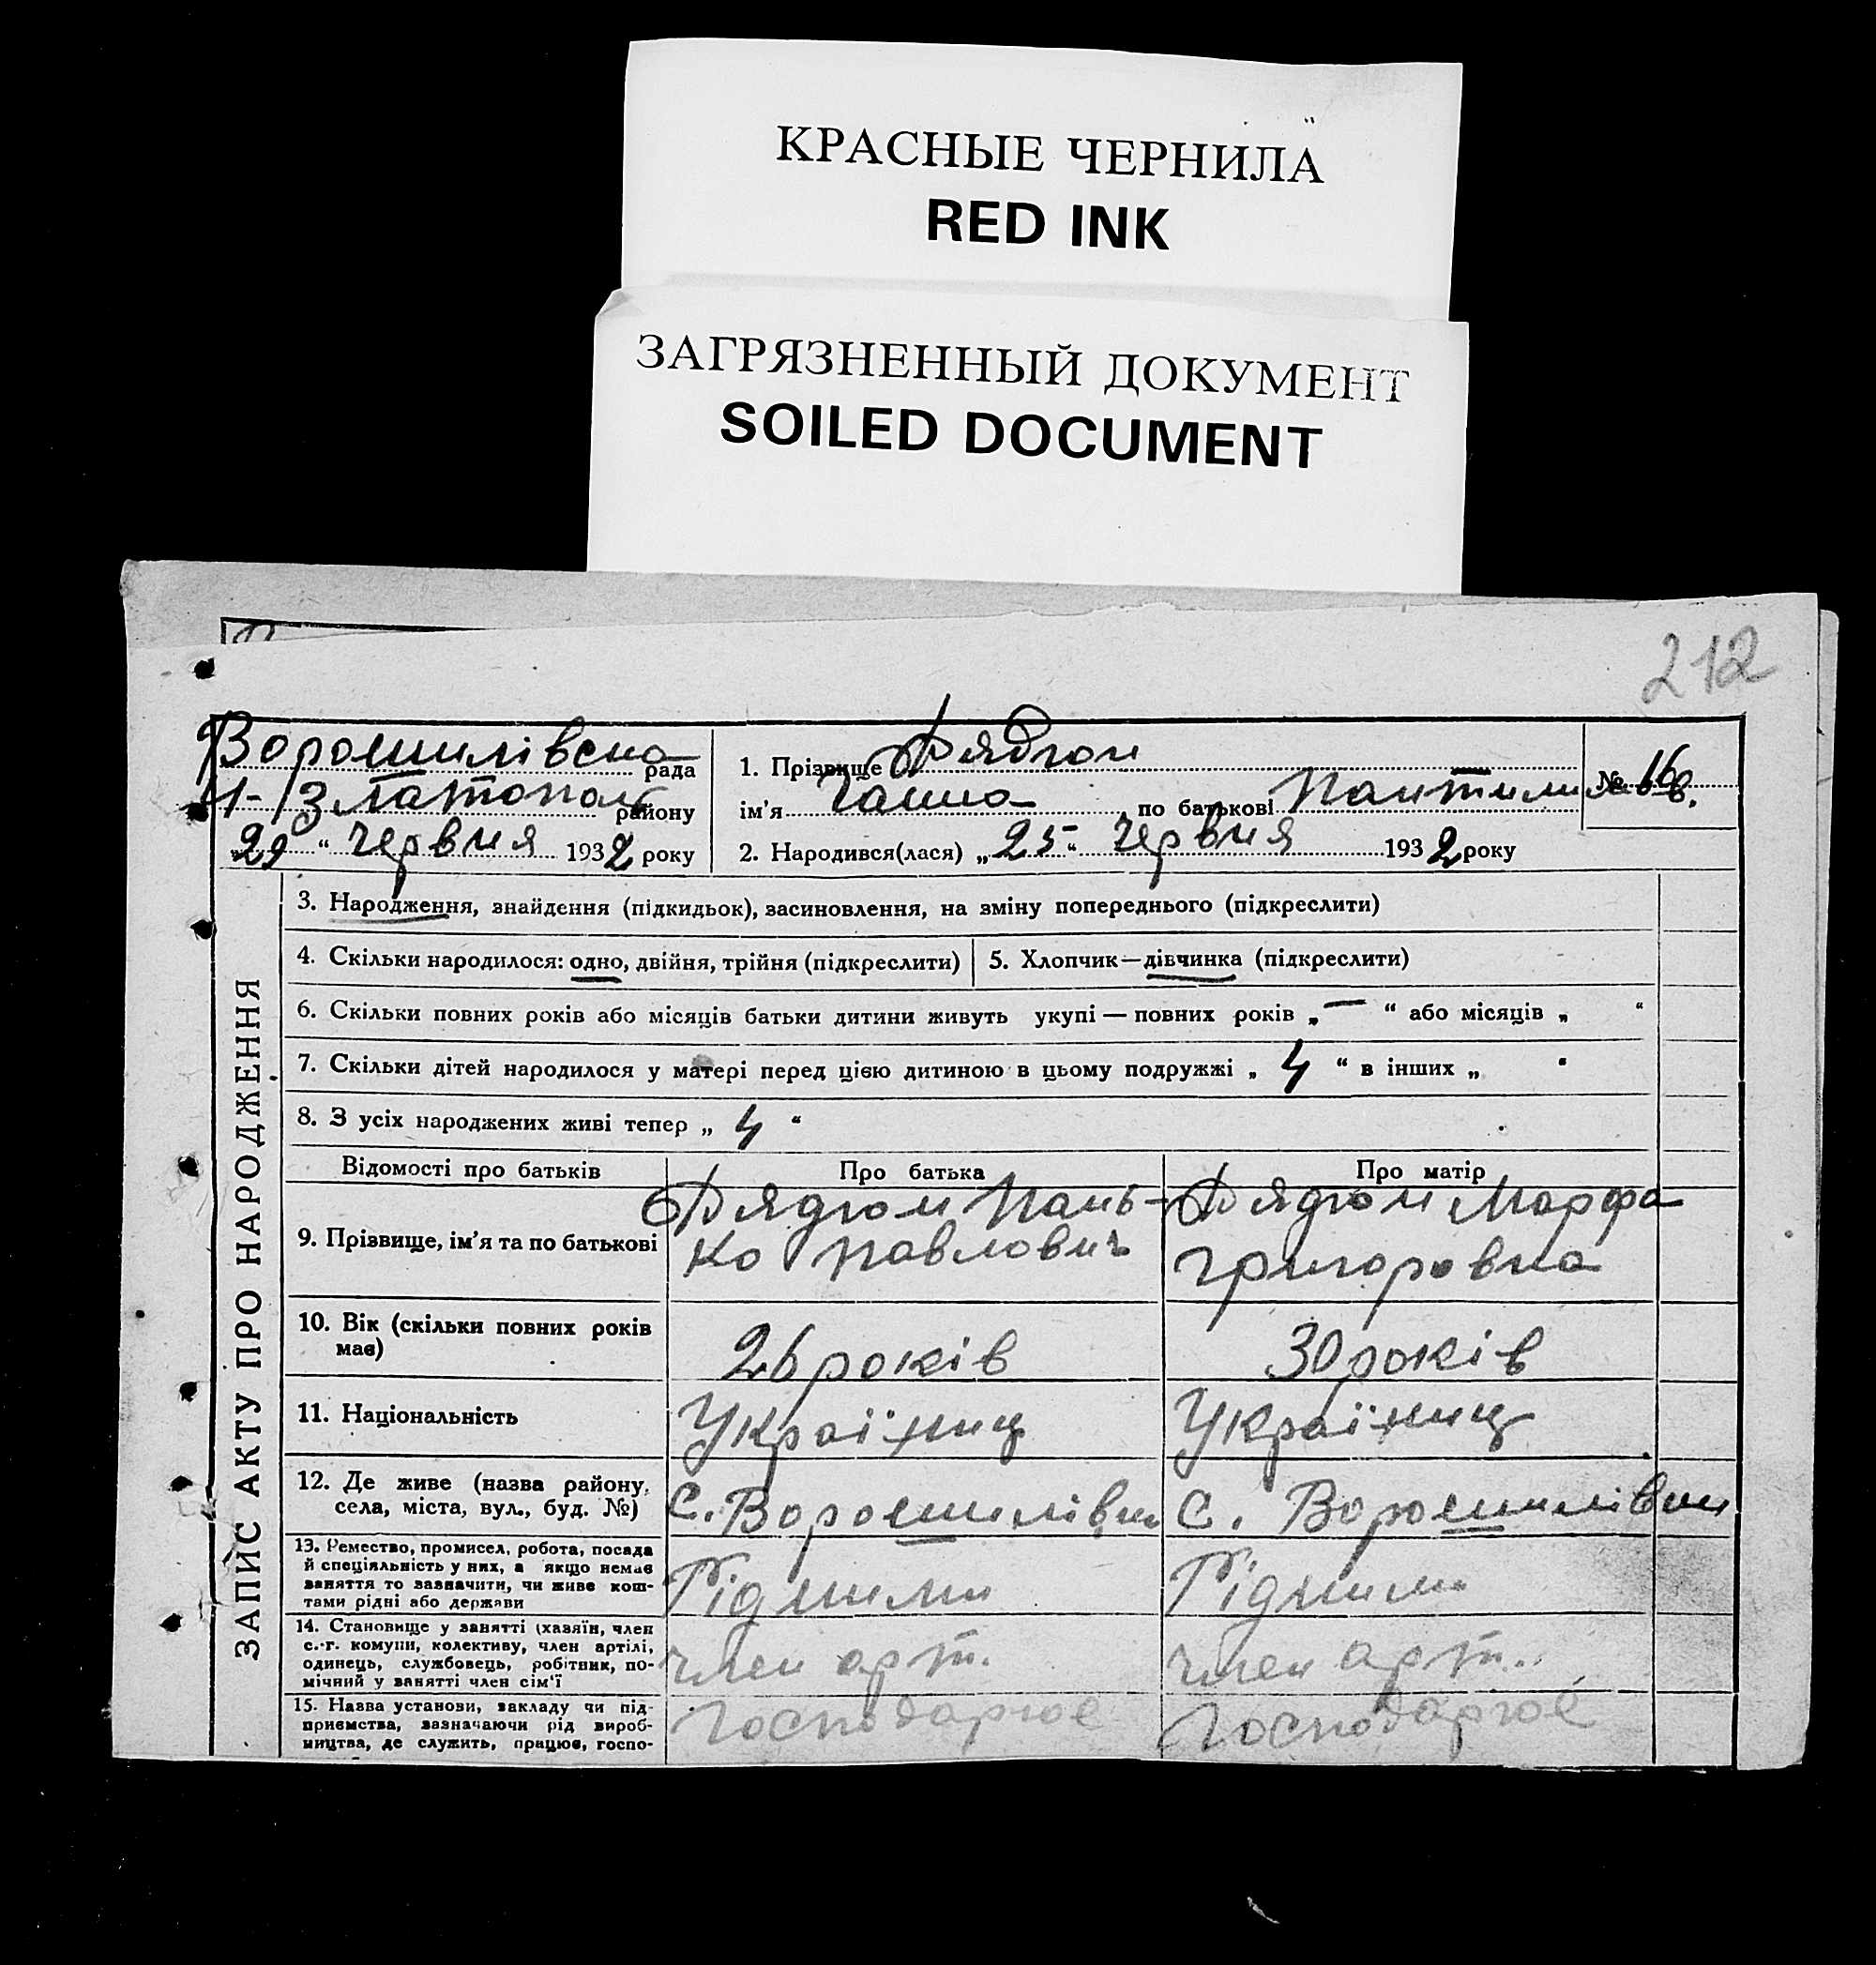 КРАСНЫЕ ЧЕРНИЛА
RED INK
ЗАГРЯЗНЕННЫЙ ДОКУМЕНТ
SOILED DOCUMENT
212
ЗАПИС АКТУ ПРО НАРОДЖЕННЯ
Ворошилівська рада
Златополь району
29 " червня 1932 року
1. Прізвище
ім'я Ганна по батькові
№ 16
2. Народився(лася) „ 25 " червня 1932 року
3. Народження, знайдення (підкидьок), засиновлення, на зміну попереднього (підкреслити)
4. Скільки народилося: одно, двійня, трійня (підкреслити)
5. Хлопчик—дівчинка (підкреслити)
6. Скільки повних років або місяців батьки дитини живуть укупі — повних років „ — " або місяців „ "
7. Скільки дітей народилося у матері перед цією дитиною в цьому подружжі „ 4 " в інших „ "
8. З усіх народжених живі тепер „ 4 "
Відомості про батьків Про батька Про матір
9. Прізвище, ім'я та по батькові
Пань-
ко Павлович
Марфа
Григоровна
10. Вік (скільки повних років
має)
26 років
30 років
11. Національність
Україниц
Україниц
12. Де живе (назва району,
села, міста, вул., буд. №)
с. Ворошилівки
с. Ворошилівки
13. Ремество, промисел, робота, посада
й спеціяльність у них, а якщо немає
заняття то зазначити, чи живе кош-
тами рідні або держави
Рідними
Рідними
14. Становище у занятті (хазяїн, член
с.-г. комуни, колективу, член артілі,
одинець, службовець, робітник, по-
мічний у занятті член сім'ї
член арт.
член арт.
15. Назва установи, закладу чи під-
приємства, зазначаючи рід вироб-
ництва, де служить, працює, госпо-
Господарює
Господарює